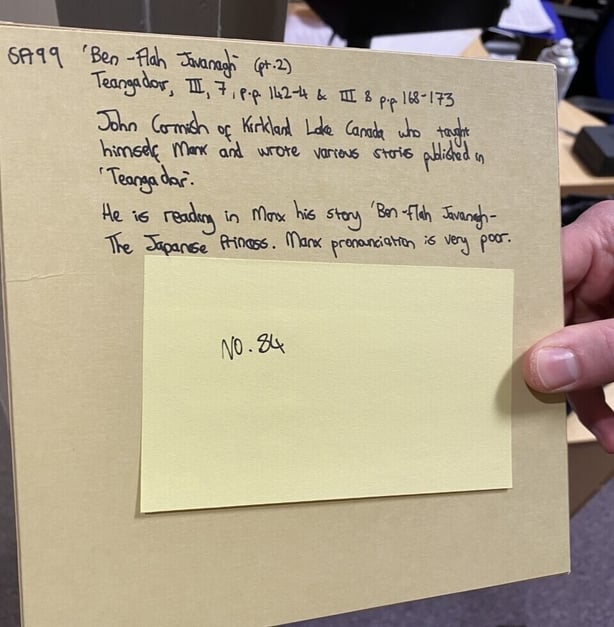 SA99 'Ben-Flah Javanagh' (pt.2)
Teangadoir, III, 7, p.p. 142-4 & III 8 p.p 168-173
John Cornish of Kirkland Lake Canada who taught
himself Manx and wrote various stories published in
'Teangadoir'.
He is reading in Manx his story 'Ben-flah Javanagh-
The Japanese Princess. Manx pronunciation is very poor.
NO. 84